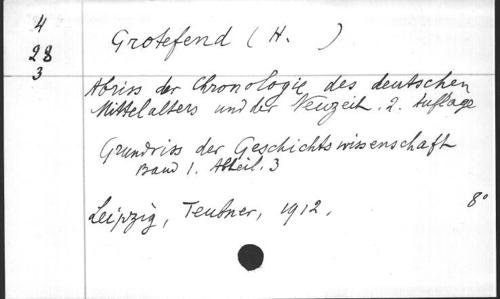 4
28
3
Grotefend (H. )
Abriss der Chronologie des deutschen
Mittelalters und der Neuzeit. 2. Auflage
Grundriss der Geschichtswissenschaft
Band 1. Abteil. 3
Leipzig, Teubner, 1912.
8°